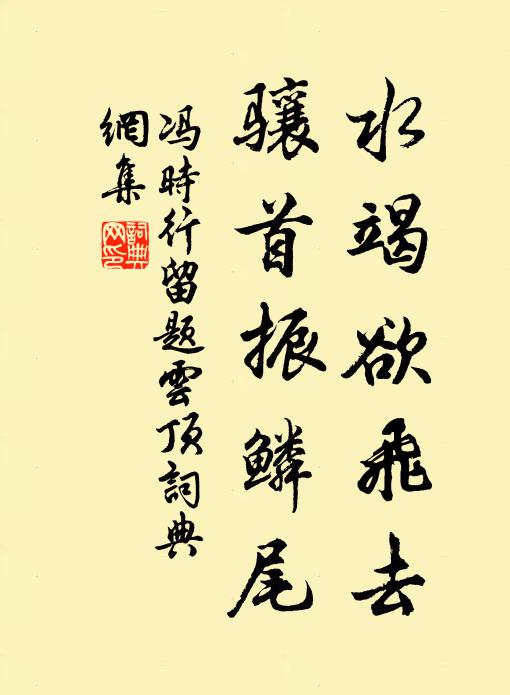 水竭欲飛去
骧首振鳞尾
冯時行留題雲頂詞典
網集
詞典
网印